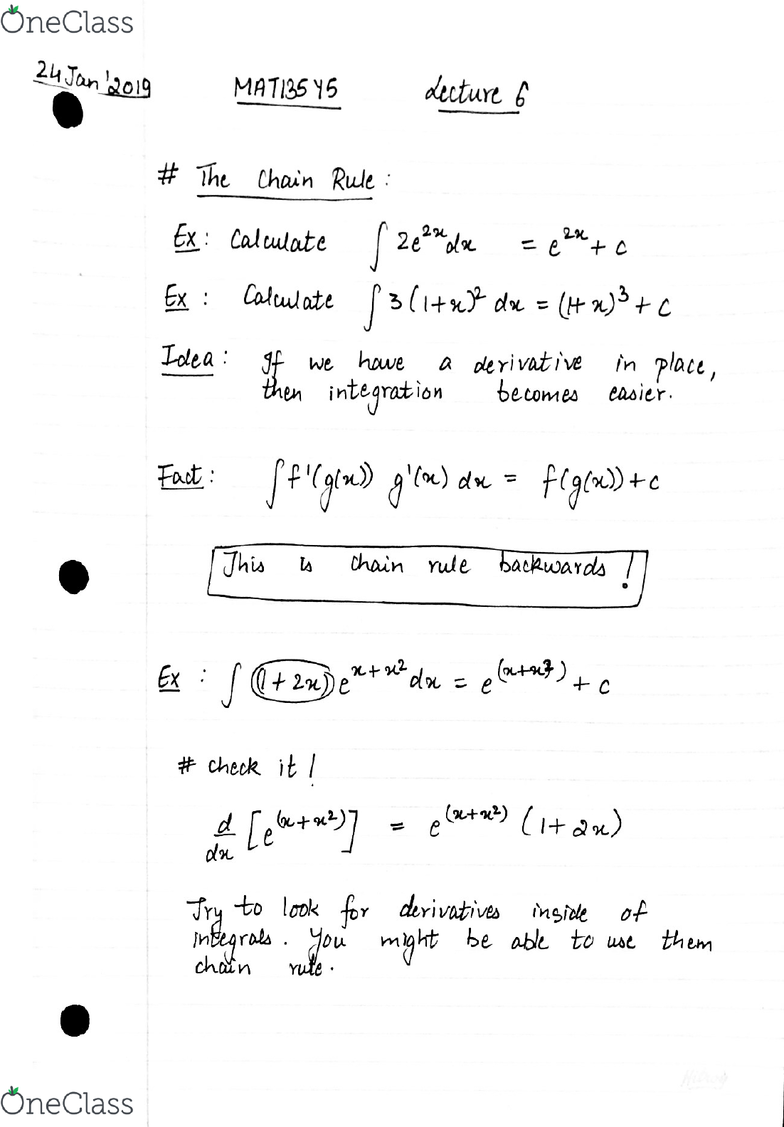 OneClass
24 Jan '2019 MAT135Y5 Lecture 6
# The Chain Rule :
Ex : Calculate ∫ 2e^{2x} dx = e^{2x} + c
Ex : Calculate ∫ 3(1+x)^2 dx = (1+x)^3 + c
Idea : If we have a derivative in place,
then integration becomes easier.
Fact : ∫ f'(g(x)) g'(x) dx = f(g(x)) + c
This is chain rule backwards !
Ex : ∫ (1+2x) e^{x+x^2} dx = e^{(x+x^2)} + c
# check it !
d/dx [e^{(x+x^2)}] = e^{(x+x^2)} (1+2x)
Try to look for derivatives inside of
integrals. You might be able to use them
chain rule.
OneClass